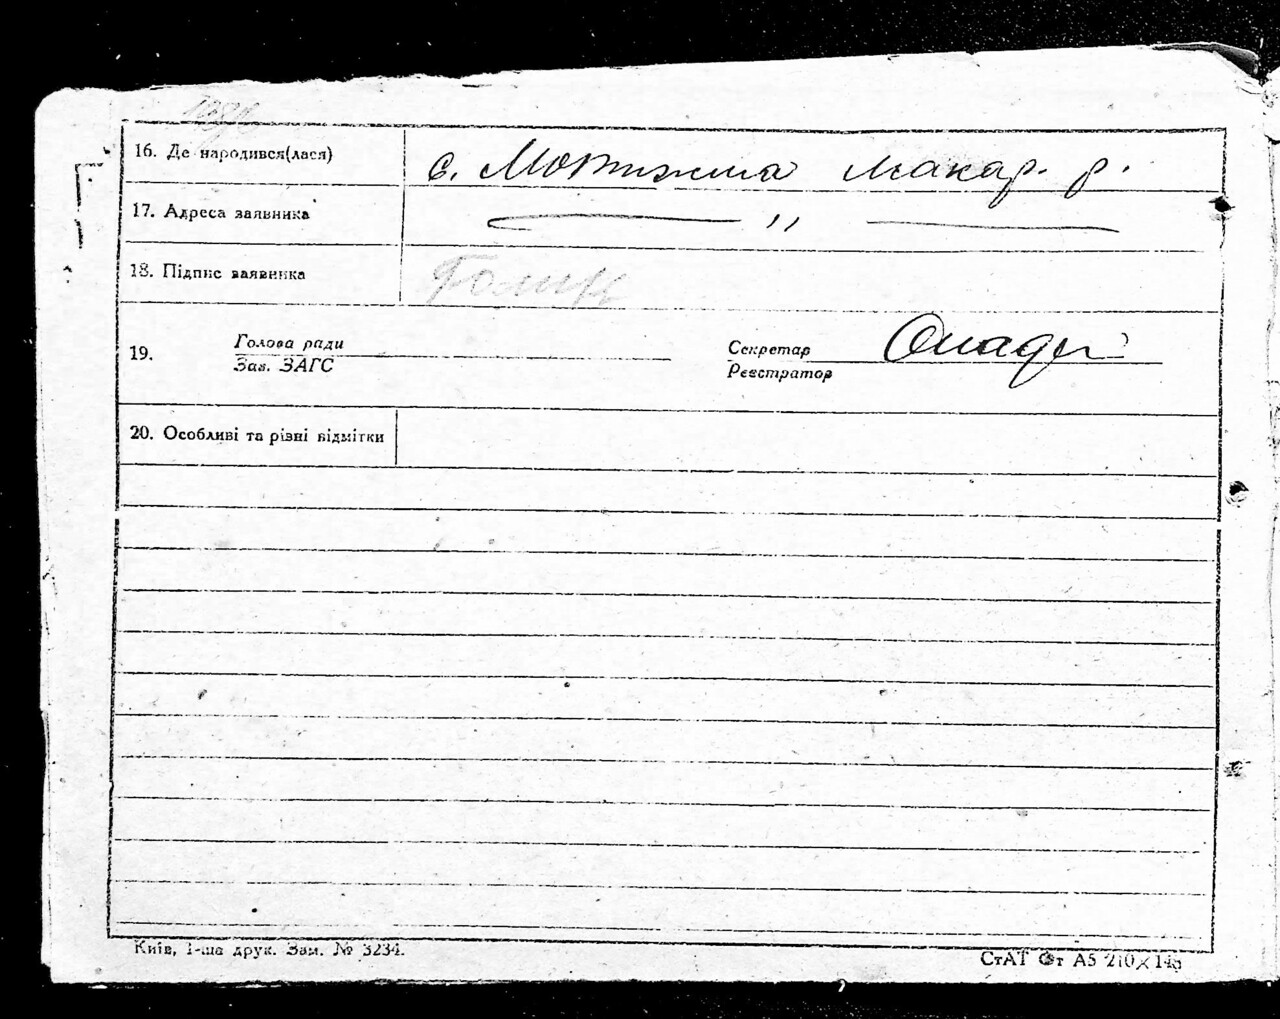 16. Де народився(лася) с. Мотижина Макар. р.
17. Адреса заявника — " —
18. Підпис заявника
19. Голова ради Секретар
Зав. ЗАГС Реєстратор
20. Особливі та різні відмітки
Київ, 1-ша друк. Зам. № 3234. СтАТ Фт А5 210×148